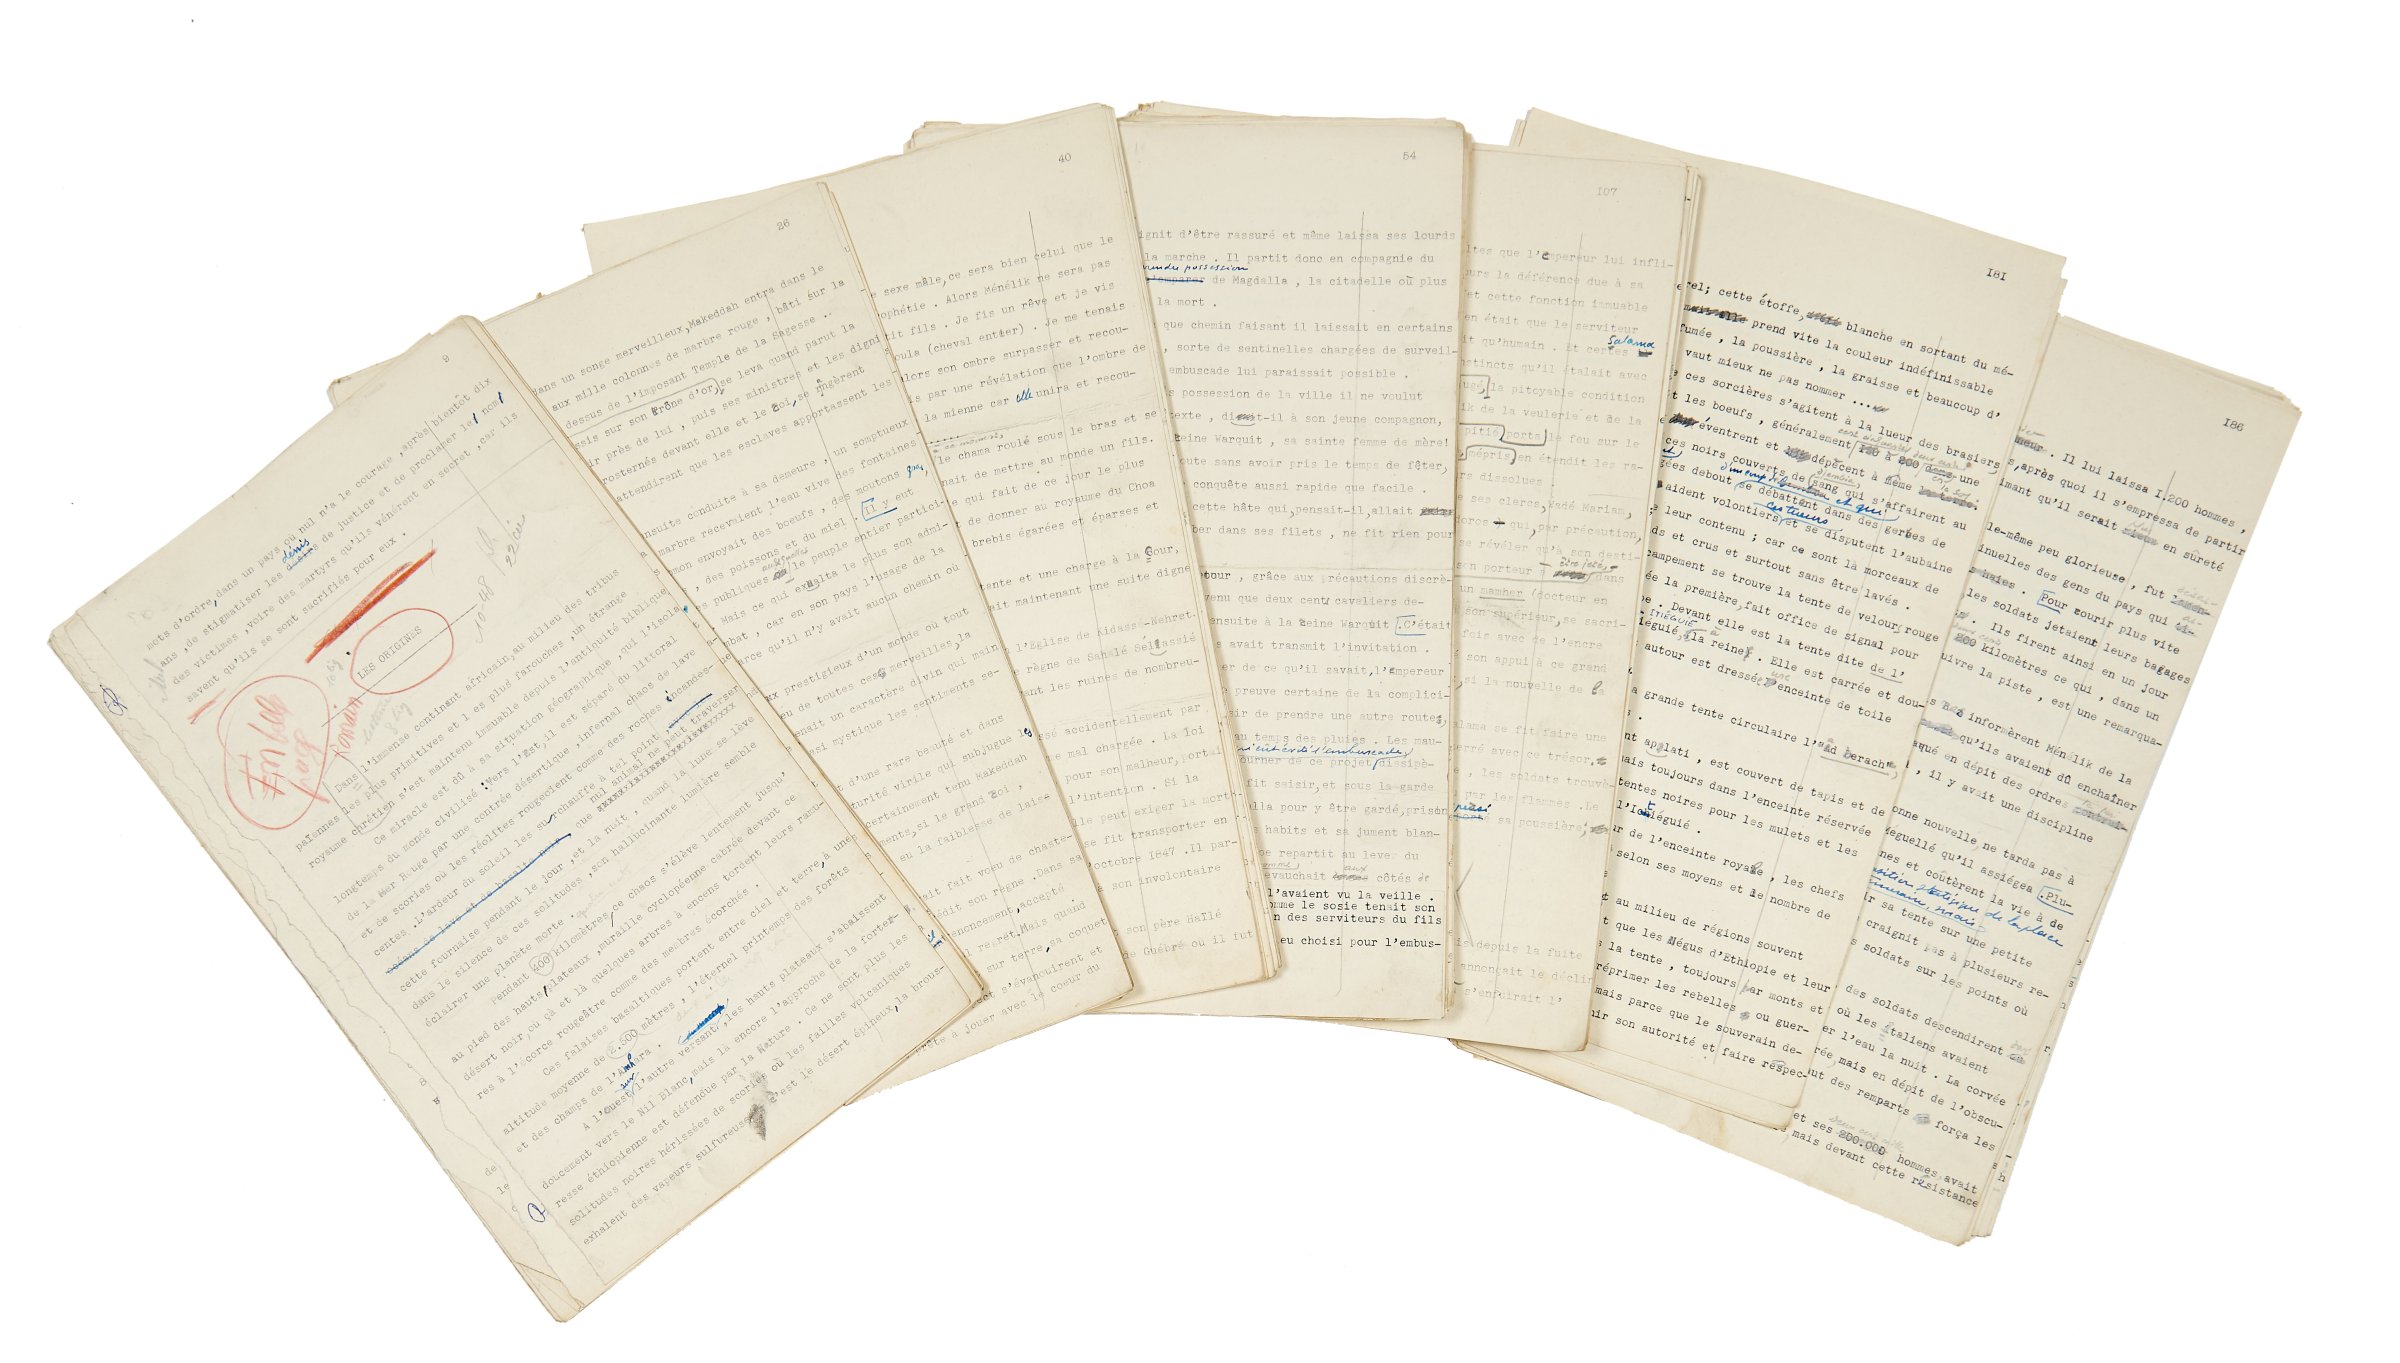 9
mots d'ordre, dans un pays où nul n'a le courage, après bientôt dix
ans, de stigmatiser les dénis de justice et de proclamer le nom
des victimes, voire des martyrs qu'ils vénèrent en secret, car ils
savent qu'ils se sont sacrifiés pour eux.
LES ORIGINES
En belle
page
romain
10 48
22 cic
Dans l'immense continent africain, au milieu des tribus
païennes les plus primitives et les plus farouches, un étrange
royaume chrétien s'est maintenu immuable depuis l'antiquité biblique
Ce miracle est dû à sa situation géographique, qui l'isola
longtemps du monde civilisé. Vers l'Est, il est séparé du littoral
de la Mer Rouge par une contrée désertique, infernal chaos de lave
et de scories où les réolites rougeoient comme des roches incandes-
centes. L'ardeur du soleil les surchauffe à tel point,
que nul animal ne peut traverser
cette fournaise pendant le jour, et la nuit, quand la lune se lève
dans le silence de ces solitudes, son hallucinante lumière semble
éclairer une planète morte.
Pendant 400 kilomètres, ce chaos s'élève lentement jusqu'
au pied des hauts plateaux, muraille cyclopéenne cabrée devant ce
désert noir, où çà et là quelques arbres à encens tordent leurs ramu-
res à l'écorce rougeâtre comme des membres écorchés.
Ces falaises basaltiques portent entre ciel et terre, à une
altitude moyenne de 2.500 mètres, l'éternel printemps des forêts
et des champs de l'Amhara.
sur
A l'ouest, l'autre versant, les hauts plateaux s'abaissent
doucement vers le Nil Blanc, mais là encore l'approche de la forte-
resse éthiopienne est défendue par la Nature. Ce ne sont plus les
solitudes noires hérissées de scories où les failles volcaniques
exhalent des vapeurs sulfureuses, c'est le désert épineux, la brous-
26
dans un songe merveilleux, Makeddah entra dans le
aux mille colonnes de marbre rouge, bâti sur la
dessus de l'imposant Temple de la Sagesse..
ssis sur son trône d'or, se leva quand parut la
ir près de lui, puis ses ministres et les digni
rosternés devant elle et le Roi, se rangèrent
attendirent que les esclaves apportassent les
nsuite conduite à sa demeure, un somptueux
marbre recevraient l'eau vive des fontaines
mon envoyait des boeufs, des moutons gras,
, des poissons et du miel. Il y eut
s publiques auxquelles le peuple entier partici-
Mais ce qui exalta le plus son admi-
bat, car en son pays l'usage de la
rce qu'il n'y avait aucun chemin où
ux prestigieux d'un monde où tout
eu de toutes ces merveilles, la
enait un caractère divin qui main
si mystique les sentiments se-
t d'une rare beauté et dans
turité virile qui subjugue les
certainement tenu Makeddah
ments, si le grand Roi,
eu la faiblesse de laiss
ait fait voeu de chaste-
édit son règne. Dans sa
enoncement, accepté
l regret. Mais quand
sur terre, sa coquet
ct s'évanouirent et
prête à jouer avec le coeur du
40
e sexe mâle, ce sera bien celui que le
ophétie. Alors Ménélik ne sera pas
tit fils. Je fis un rêve et je vis
oula (cheval entier). Je me tenais
lors son ombre surpasser et recou-
is par une révélation que l'ombre de
la mienne car elle unira et recou-
le chama roulé sous le bras et se
nait de mettre au monde un fils.
e qui fait de ce jour le plus
t de donner au royaume du Choa
brebis égarées et éparses et
tante et une charge à la Cour,
ait maintenant une suite digne
l'Eglise de Kidassé-Mehret.
e règne de Sahalé Sellassié
ant les ruines de nombreu-
ssé accidentellement par
e mal chargée. La loi
pour son malheur, portai
l'intention. Si la
lle peut exiger la mort
se fit transporter en
octobre 1847. Il par-
à son involontaire
son père Hallé
de Guébré ou il fut
54
ignit d'être rassuré et même laissa ses lourds
la marche. Il partit donc en compagnie du
rendre possession
s'emparer de Magdalla, la citadelle où plus
la mort.
que chemin faisant il laissait en certains
, sorte de sentinelles chargées de surveil-
embuscade lui paraissait possible.
s possession de la ville il ne voulut
texte, dit-il à son jeune compagnon,
Reine Warquit, sa sainte femme de mère!
oute sans avoir pris le temps de fêter,
conquête aussi rapide que facile.
cette hâte qui, pensait-il, allait
ber dans ses filets, ne fit rien pour
etour, grâce aux précautions discrè-
venu que deux cents cavaliers de-
ensuite à la Reine Warquit. C'était
s avait transmit l'invitation.
er de ce qu'il savait, l'empereur
e preuve certaine de la complici-
sir de prendre une autre route,
au temps des pluies. Les mau-
ourner de ce projet dissipè-
fit saisir, et sous la garde
lla pour y être gardé, prison
s habits et sa jument blan-
pe repartit au lever du
evauchait aux côtés de
l'avaient vu la veille.
omme le sosie tenait son
n des serviteurs du fils
eu choisi pour l'embus-
107
ltes que l'empereur lui infli-
urs la déférence due à sa
et cette fonction immuable
en était que le serviteur
it qu'humain. Et certes Salama
stincts qu'il étalait avec
ugé, la pitoyable condition
ik de la veulerie et de la
pitié porta le feu sur le
mépris, en étendit les ra-
rs dissolues.
e ses clercs, Vadé Mariam,
doros qui, par précaution,
se révéler qu'à son desti-
son porteur dans
un mamher (docteur en
son supérieur, se sacri-
fois avec de l'encre
son appui à ce grand
, si la nouvelle de la
alama se fit faire une
erré avec ce trésor,
, les soldats trouvè-
par les flammes. Le
é sa poussière;
is depuis la fuite
annonçait le déclin
s'enfuirait l'
181
rel; cette étoffe, blanche en sortant du mé-
prend vite la couleur indéfinissable
fumée, la poussière, la graisse et beaucoup d'
vaut mieux ne pas nommer ...
e ces sorcières s'agitent à la lueur des brasiers
t les boeufs, généralement 150 à 200 dans une
éventrent et dépècent à même
ces noirs couverts de sang qui s'affairent au
gées debout se débattent dans des gerbes de
aident volontiers et se disputent l'aubaine
e leur contenu; car ce sont là morceaux de
ds et crus et surtout sans être lavés.
campement se trouve la tente de velours rouge
ée la première, fait office de signal pour
pe. Devant elle est la tente dite de l'
iéguié, à la reine. Elle est carrée et dou-
autour est dressée une enceinte de toile
a grande tente circulaire l'"ad berach",
nt aplati, est couvert de tapis et de
ais toujours dans l'enceinte réservée
tentes noires pour les mulets et les
l'Itiéguié.
ur de l'enceinte royale, les chefs
selon ses moyens et le nombre de
au milieu de régions souvent
t que les Négus d'Ethiopie et leur
la tente, toujours par monts et
réprimer les rebelles ou guer-
mais parce que le souverain de-
nir son autorité et faire respec-
186
. Il lui laissa 1.200 hommes,
s, après quoi il s'empressa de partir
imant qu'il serait en sûreté
le-même peu glorieuse, fut
inuelles des gens du pays qui
s haies. Pour courir plus vite
les soldats jetaient leurs bagages
. Ils firent ainsi en un jour
200 kilomètres ce qui, dans un
uivre la piste, est une remarqua-
s Ras informèrent Ménélik de la
qu'ils avaient dû enchaîner
aqué en dépit des ordres
, il y avait une discipline
onne nouvelle, ne tarda pas à
éguellé qu'il assiégea. Plu-
nes et coûtèrent la vie à de
r sa tente sur une petite
craignit pas à plusieurs re-
s soldats sur les points où
des soldats descendirent
où les Italiens avaient
er l'eau la nuit. La corvée
rée, mais en dépit de l'obscu-
ut des remparts força les
et ses 200.000 hommes avait
mais devant cette résistance